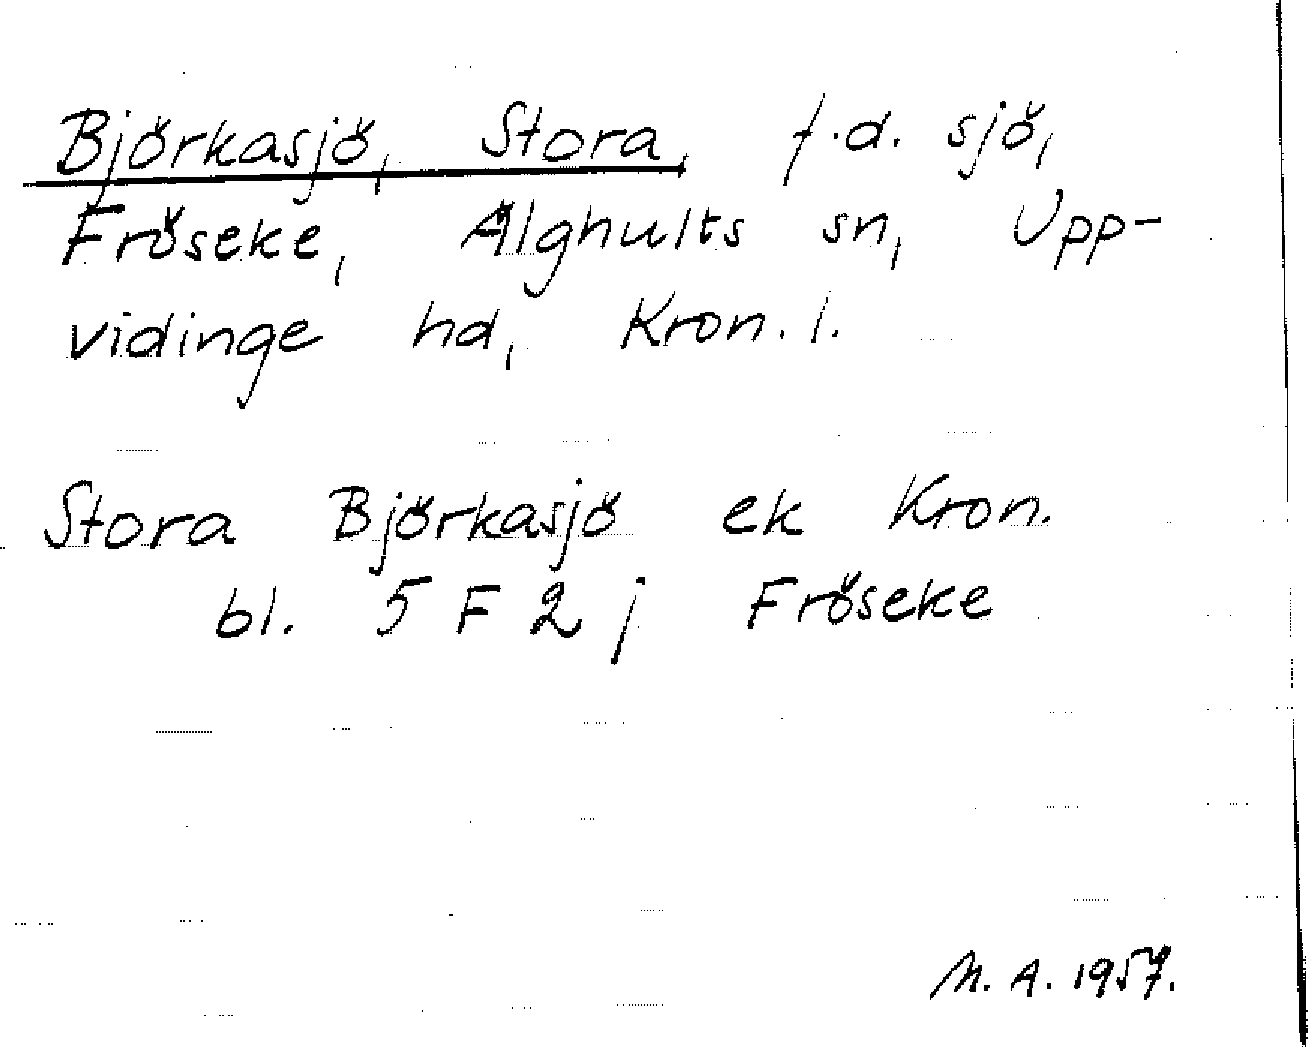 Björkasjö, Stora, f.d. sjö,
Fröseke, Älghults sn, Upp-
vidinge hd, Kron. l.
Stora Björkasjö ek Kron.
bl. 5 F 2 j Fröseke
M. A. 1957.